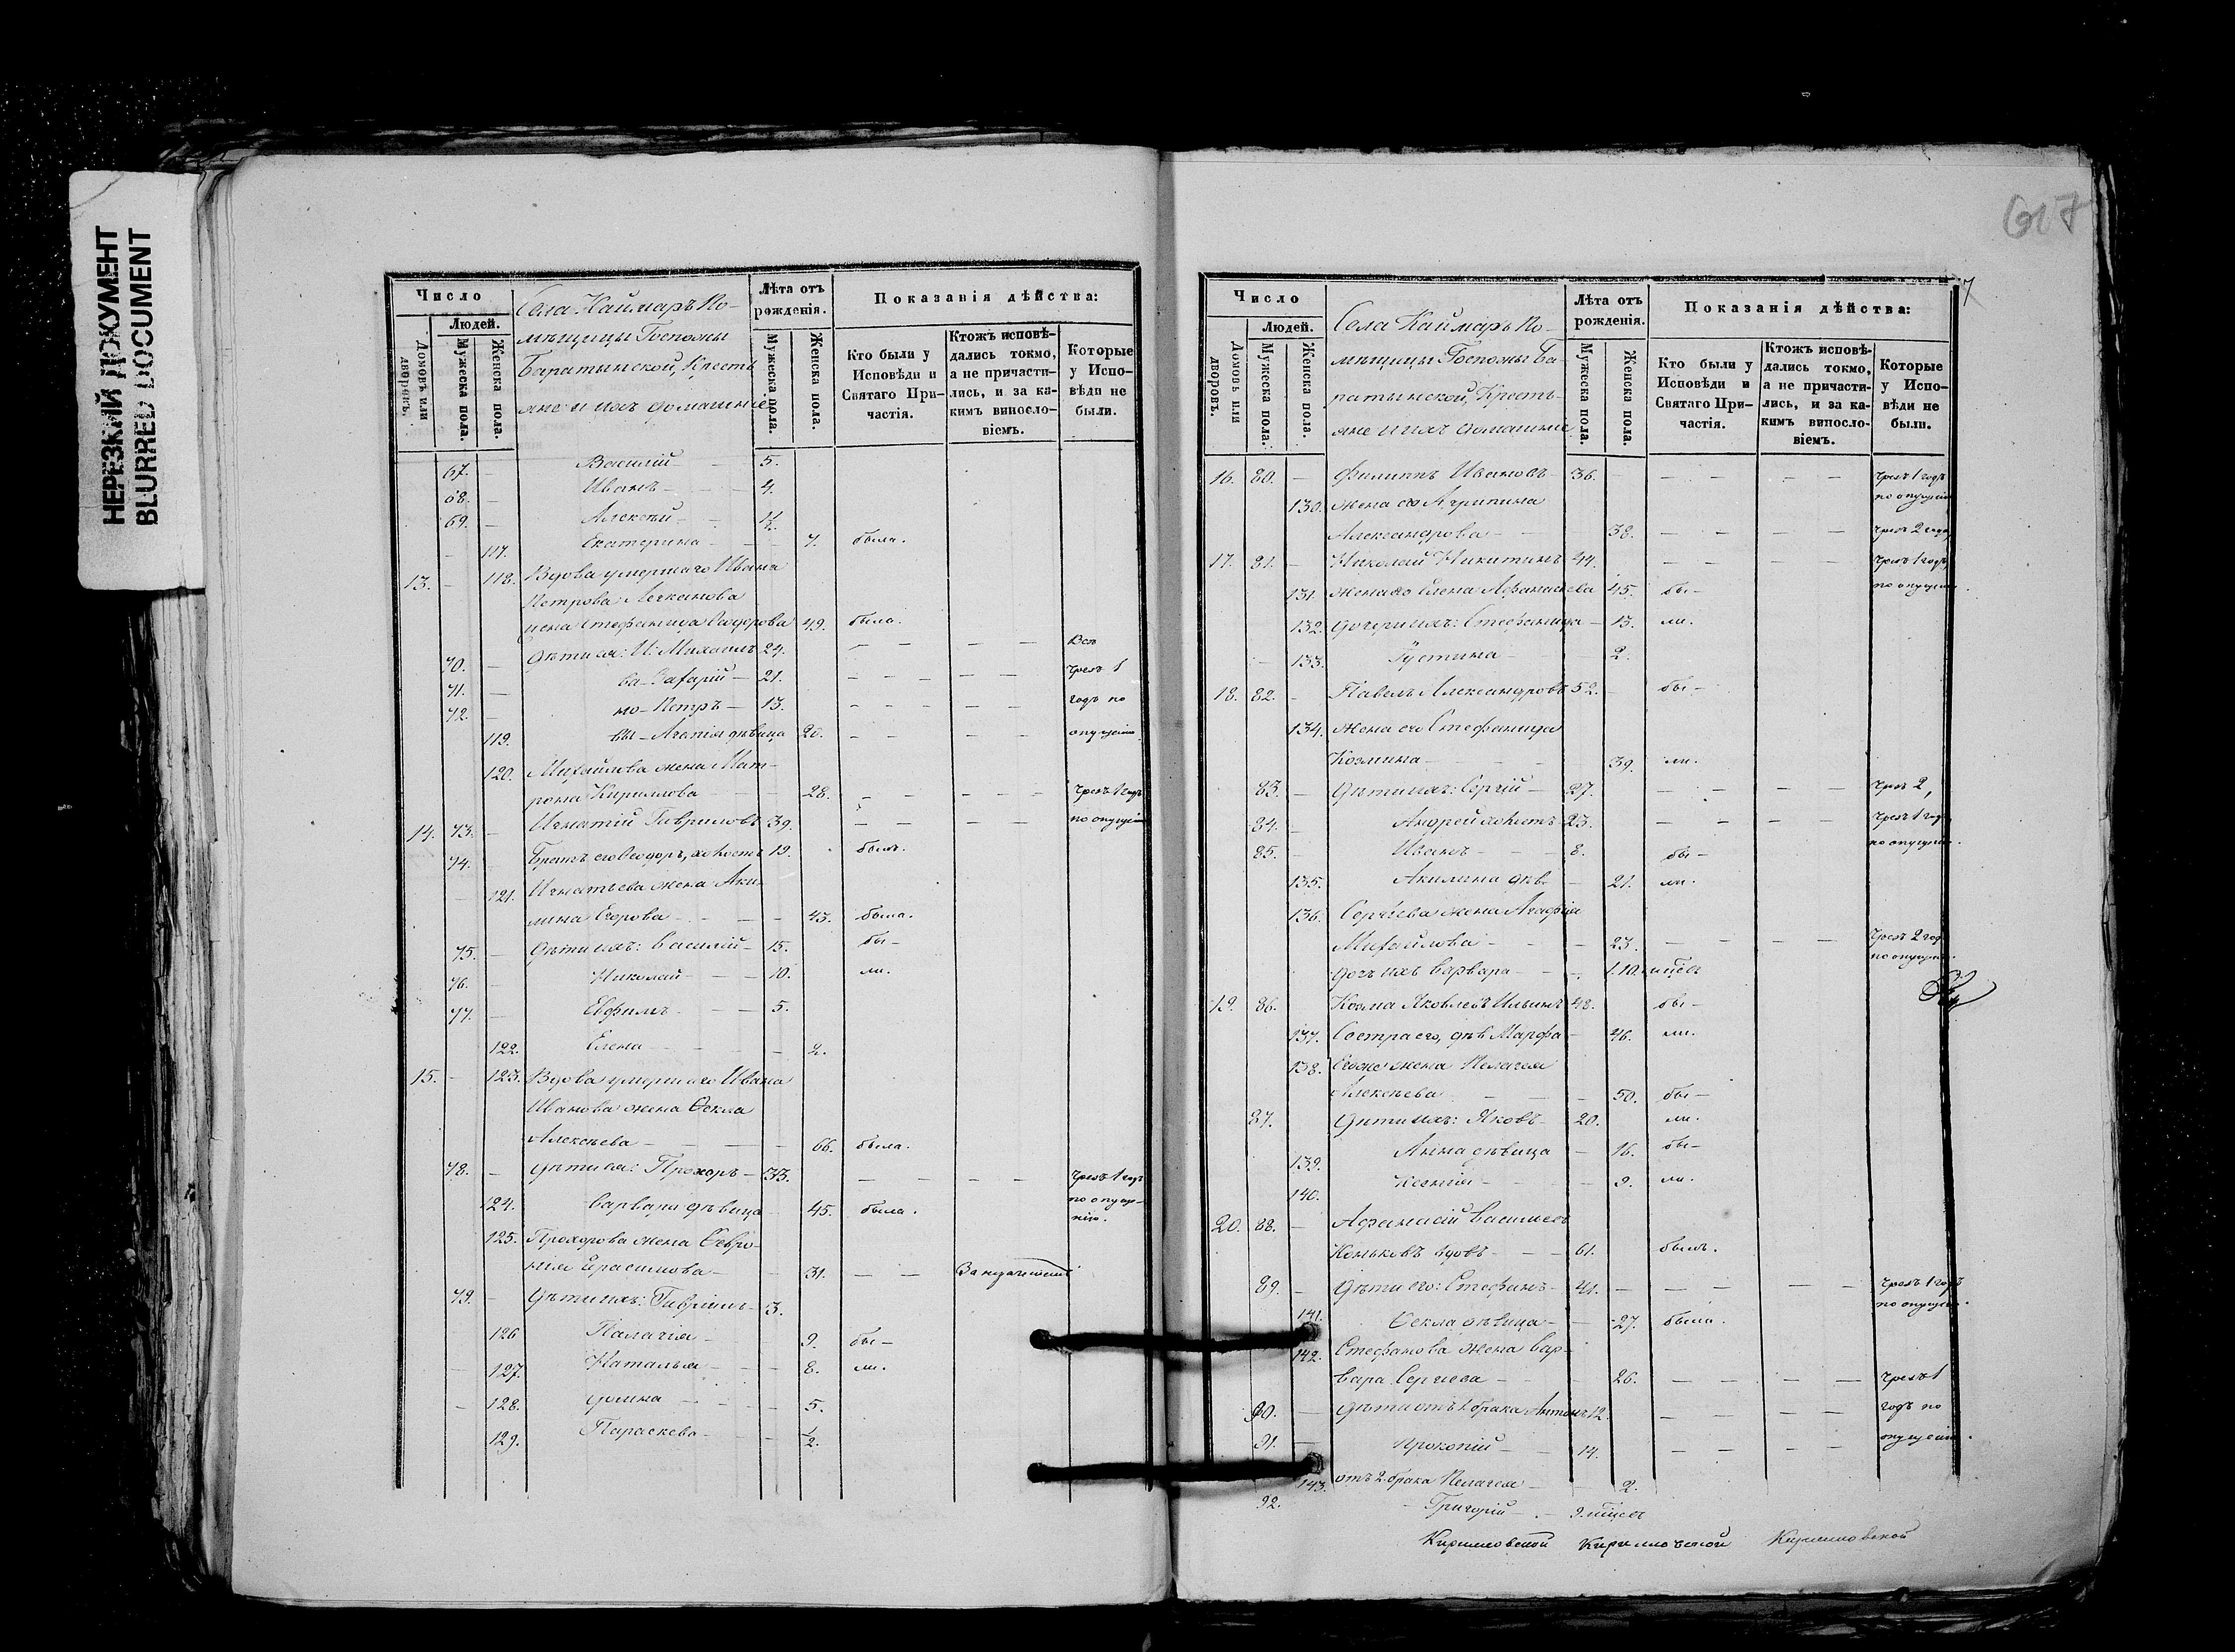 НЕРЕЗКИЙ ДОКУМЕНТ
BLURRED DOCUMENT
Число
Людей.
Домовъ или дворовъ.
Мужеска пола.
Женска пола.
Села Каймаръ По-
мѣщицы Госпожи
Баратынской, Кресть
яне и ихъ домашніе
Лѣта отъ рожденія.
Мужеска пола.
Женска пола.
Показанія дѣйства:
Кто были у Исповѣди и Святаго При-частія.
Ктожъ исповѣ-дались токмо, а не причасти-лись, и за ка-кимъ виносло-віемъ.
Которые у Испо-вѣди не были.
67. — Василій — 5.
68. — Иванъ — 4.
69. — Алексѣй — ½.
— 117. Екатерина — 7. была.
13. — 118. Вдова умершаго Ивана
Петрова
жена Стефанида 49. была.
70. — дѣти ея: И: Михаилъ 24. — — — — Всѣ
71. — ва — Захарій — 21. — — — — — чрезъ 1
72. — но — Петръ — 13. — — — — — годъ по
119. вы — Агапія дѣвица 20. — — — — опущенію
120. Михайлова жена Мат-
рона Кириллова — 28. — — — — — чрезъ 1 годъ
14. 73. — Игнатій Гавриловъ 39. — — — — по опущенію
74. Братъ его Ѳеодоръ, холостъ 19. былъ.
— 121. Игнатьева жена Аки-
лина Егорова — 43. была.
75. — дѣти ихъ: Василій — 15. бы —
76. — Николай — 10. ли.
77. — Евфимъ — 5.
122. Елена — 2.
15. — 123. Вдова умершаго Ивана
Иванова жена Ѳекла
Алексѣева — 66. была.
78. — дѣти ея: Прохоръ — 33. — — — — чрезъ 1 годъ
124. Варвара дѣвица 45. была. по опуще-
нію.
125. Прохорова жена Ѳевро-
нія Герасимова — 31. — —
79. — Дѣти ихъ: Гавріилъ — 3.
126 Палагія — 9. бы —
127. Наталья — 8. ли.
— 128. Домна — 5.
129. Параскева — ½.
617
7
Число
Людей.
Домовъ или дворовъ.
Мужеска пола.
Женска пола.
Села Каймаръ По-
мѣщицы Госпожи Ба-
ратынской, Кресть-
яне и ихъ домашніе
Лѣта отъ рожденія.
Мужеска пола.
Женска пола.
Показанія дѣйства:
Кто были у Исповѣди и Святаго При-частія.
Ктожъ исповѣ-дались токмо, а не причасти-лись, и за ка-кимъ виносло-віемъ.
Которые у Испо-вѣди не были.
16. 80. — Филиппъ Ивановъ — 36. — — — — чрезъ 1 годъ
по опущенію
130. жена его Агрипина
Александрова — 38. — — — — чрезъ 2 года
17. 81. — Николай Никитинъ 44. — — — — чрезъ 1 годъ
по опущенію.
131. жена его Елена Афанасьева 45. бы —
132. дочери ихъ: Стефанида — 13. ли.
133. Густина — 2.
18. 82. — Павелъ Александровъ 52. бы —
134. жена его Стефанида
Козмина — 39. ли.
83. — Дѣти ихъ: Сергій — 27. — — — — чрезъ 2,
84. — Андрей холостъ 23. — — — — чрезъ 1 годъ
по опущенію.
85. — Иванъ — 8. бы —
135. Акилина дѣв. — 21. ли.
136. Сергѣева жена Агафія
Михайлова — 23. — — — — чрезъ 2 года
по опущенію.
дочь ихъ Варвара — 1.
19. 86. Козма Яковлевъ Ильинъ 48. бы —
137. Сестра его, дѣв. Марфа — 46. ли.
138. Егоже жена Пелагея
Алексѣева — 50. бы —
87. Дѣти ихъ: Яковъ — 20. ли.
139. Анна дѣвица — 16. бы —
140. Ксенія — 9. ли.
20. 88. — Афанасій Васильевъ
Коньковъ вдовъ — 61. былъ.
89. — дѣти его: Стефанъ — 41. — — — — чрезъ 1 годъ
по опущенію.
141. Ѳекла дѣвица — 27. была.
142. Стефанова жена Вар-
вара Сергѣева — 26. — — — — чрезъ 1
90. — дѣти отъ 1. брака Антонъ 12. — — — — годъ по
91. — Прокопій — 14. — — — — опущенію.
143. отъ 2. брака Пелагея — 2.
92. — Григорій — 9. мѣсяц.
Кирилловской Кирилловской Кирилловской